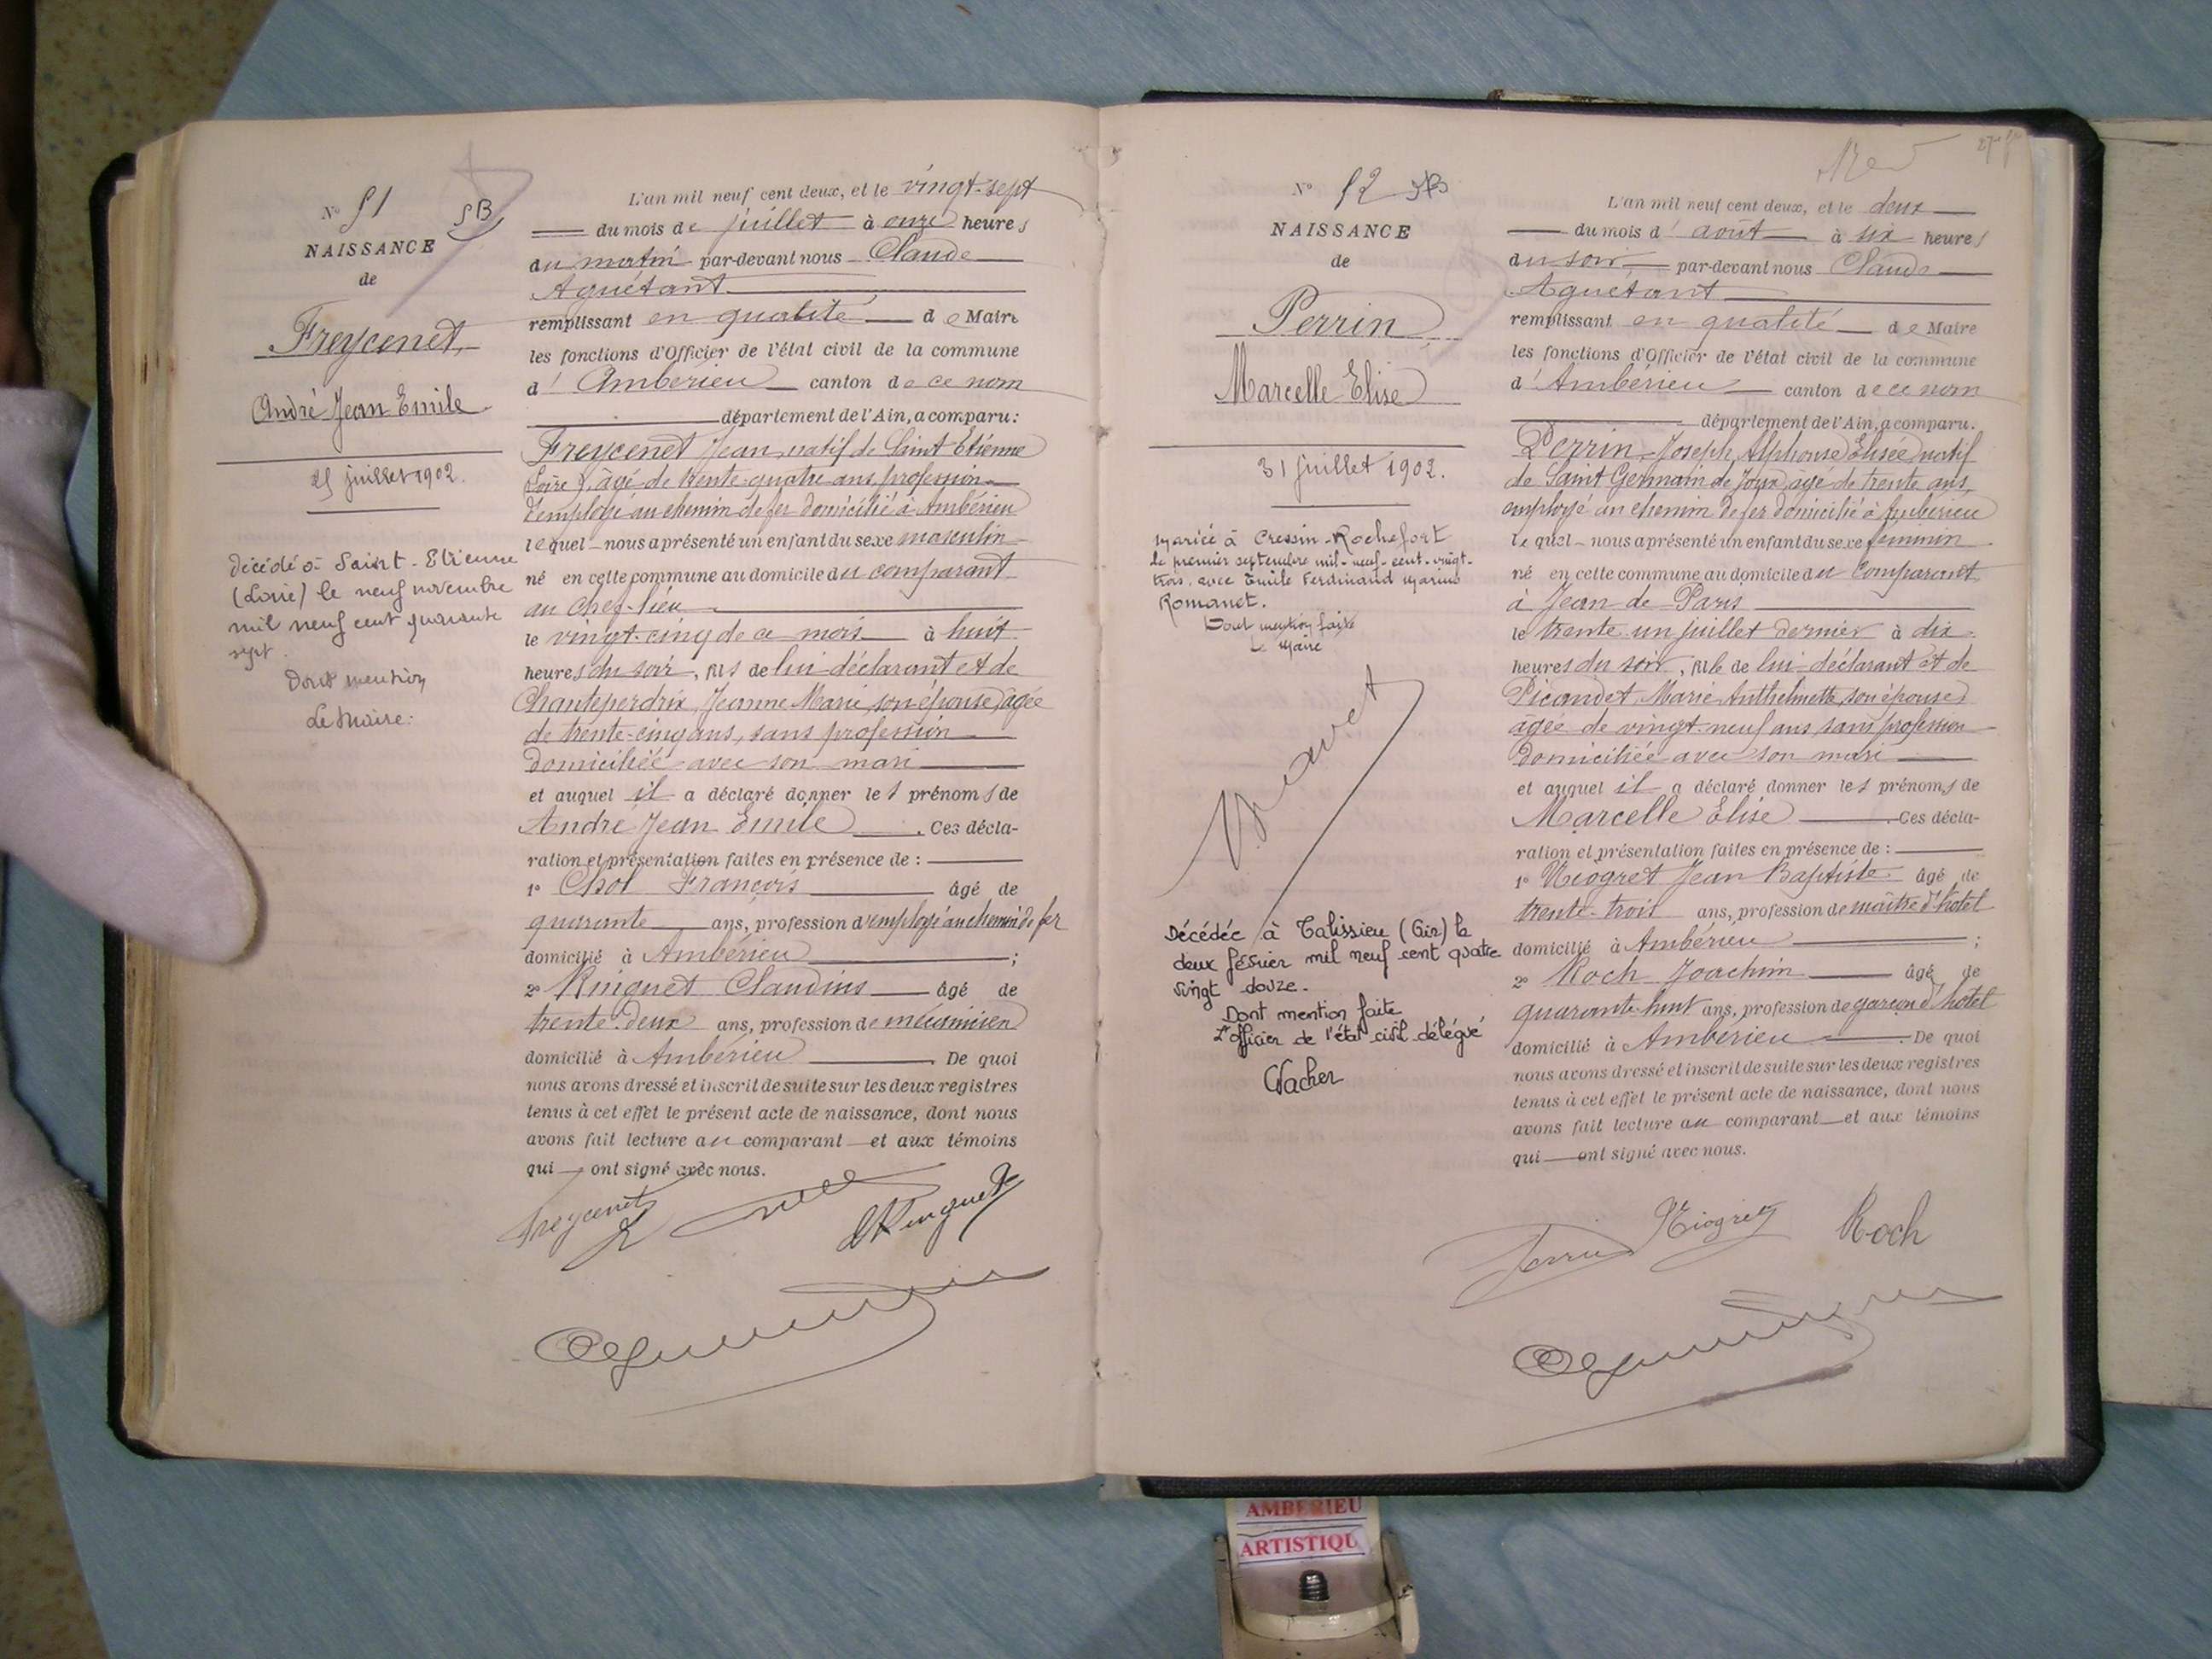 Nº 51 SB
NAISSANCE
de
Freycenet
André Jean Emile
25 juillet 1902.
décédé à Saint-Etienne
(Loire) le neuf novembre
mil neuf cent quarante
sept.
Dont mention
Le Maire:
L'an mil neuf cent deux, et le vingt-sept
du mois de juillet à onze heures
du matin par-devant nous Claude
Aguétant
remplissant en qualité de Maire
les fonctions d'Officier de l'état civil de la commune
d' Ambérieu canton de ce nom
département de l'Ain, a comparu:
Freycenet Jean, natif de Saint Etienne
(Loire), âgé de trente-quatre ans, profession
d'employé au chemin de fer domicilié à Ambérieu
lequel nous a présenté un enfant du sexe masculin
né en cette commune au domicile du comparant
au chef-lieu
le vingt-cinq de ce mois à huit
heures du soir, fils de lui déclarant et de
Chanteperdrix, Jeanne Marie, son épouse, âgée
de trente-cinq ans, sans profession
domiciliée avec son mari
et auquel il a déclaré donner les prénoms de
André Jean Emile. Ces décla-
ration et présentation faites en présence de :
1º Chol François âgé de
quarante ans, profession d'employé au chemin de fer
domicilié à Ambérieu ;
2º Ringuet Claudius âgé de
trente-deux ans, profession de mécanicien
domicilié à Ambérieu. De quoi
nous avons dressé et inscrit de suite sur les deux registres
tenus à cet effet le présent acte de naissance, dont nous
avons fait lecture au comparant et aux témoins
qui ont signé avec nous.
Freycenet
Ringuet
Nº 52 SB
NAISSANCE
de
Perrin
Marcelle Elise
31 juillet 1902.
Mariée à Cressin-Rochefort
le premier septembre mil-neuf-cent-vingt-
trois, avec Emile Ferdinand Marius
Romanet.
Dont mention faite
Le Maire
Décédée à Talissieu (Ain) le
deux février mil neuf cent quatre
vingt douze.
Dont mention faite
L'officier de l'état civil délégué
Vacher
L'an mil neuf cent deux, et le deux
du mois d' août à six heures
du soir par-devant nous Claude
Aguétant
remplissant en qualité de Maire
les fonctions d'Officier de l'état civil de la commune
d' Ambérieu canton de ce nom
département de l'Ain, a comparu.
Perrin Joseph Alphonse Elisée natif
de Saint Germain de Joux, âgé de trente ans,
employé au chemin de fer domicilié à Ambérieu
lequel nous a présenté un enfant du sexe féminin
né en cette commune au domicile du comparant
à Jean de Paris
le trente un juillet dernier à dix
heures du soir, fille de lui déclarant et de
Picandet Marie Anthelmette, son épouse
âgée de vingt-neuf ans, sans profession
domiciliée avec son mari
et auquel il a déclaré donner les prénoms de
Marcelle Elise. Ces décla-
ration et présentation faites en présence de :
1º Niogret Jean Baptiste âgé de
trente-trois ans, profession de maître d'hôtel
domicilié à Ambérieu ;
2º Roch Joachim âgé de
quarante-huit ans, profession de garçon d'hôtel
domicilié à Ambérieu. De quoi
nous avons dressé et inscrit de suite sur les deux registres
tenus à cet effet le présent acte de naissance, dont nous
avons fait lecture au comparant et aux témoins
qui ont signé avec nous.
Perrin Niogret Roch
AMBERIEU
ARTISTIQU